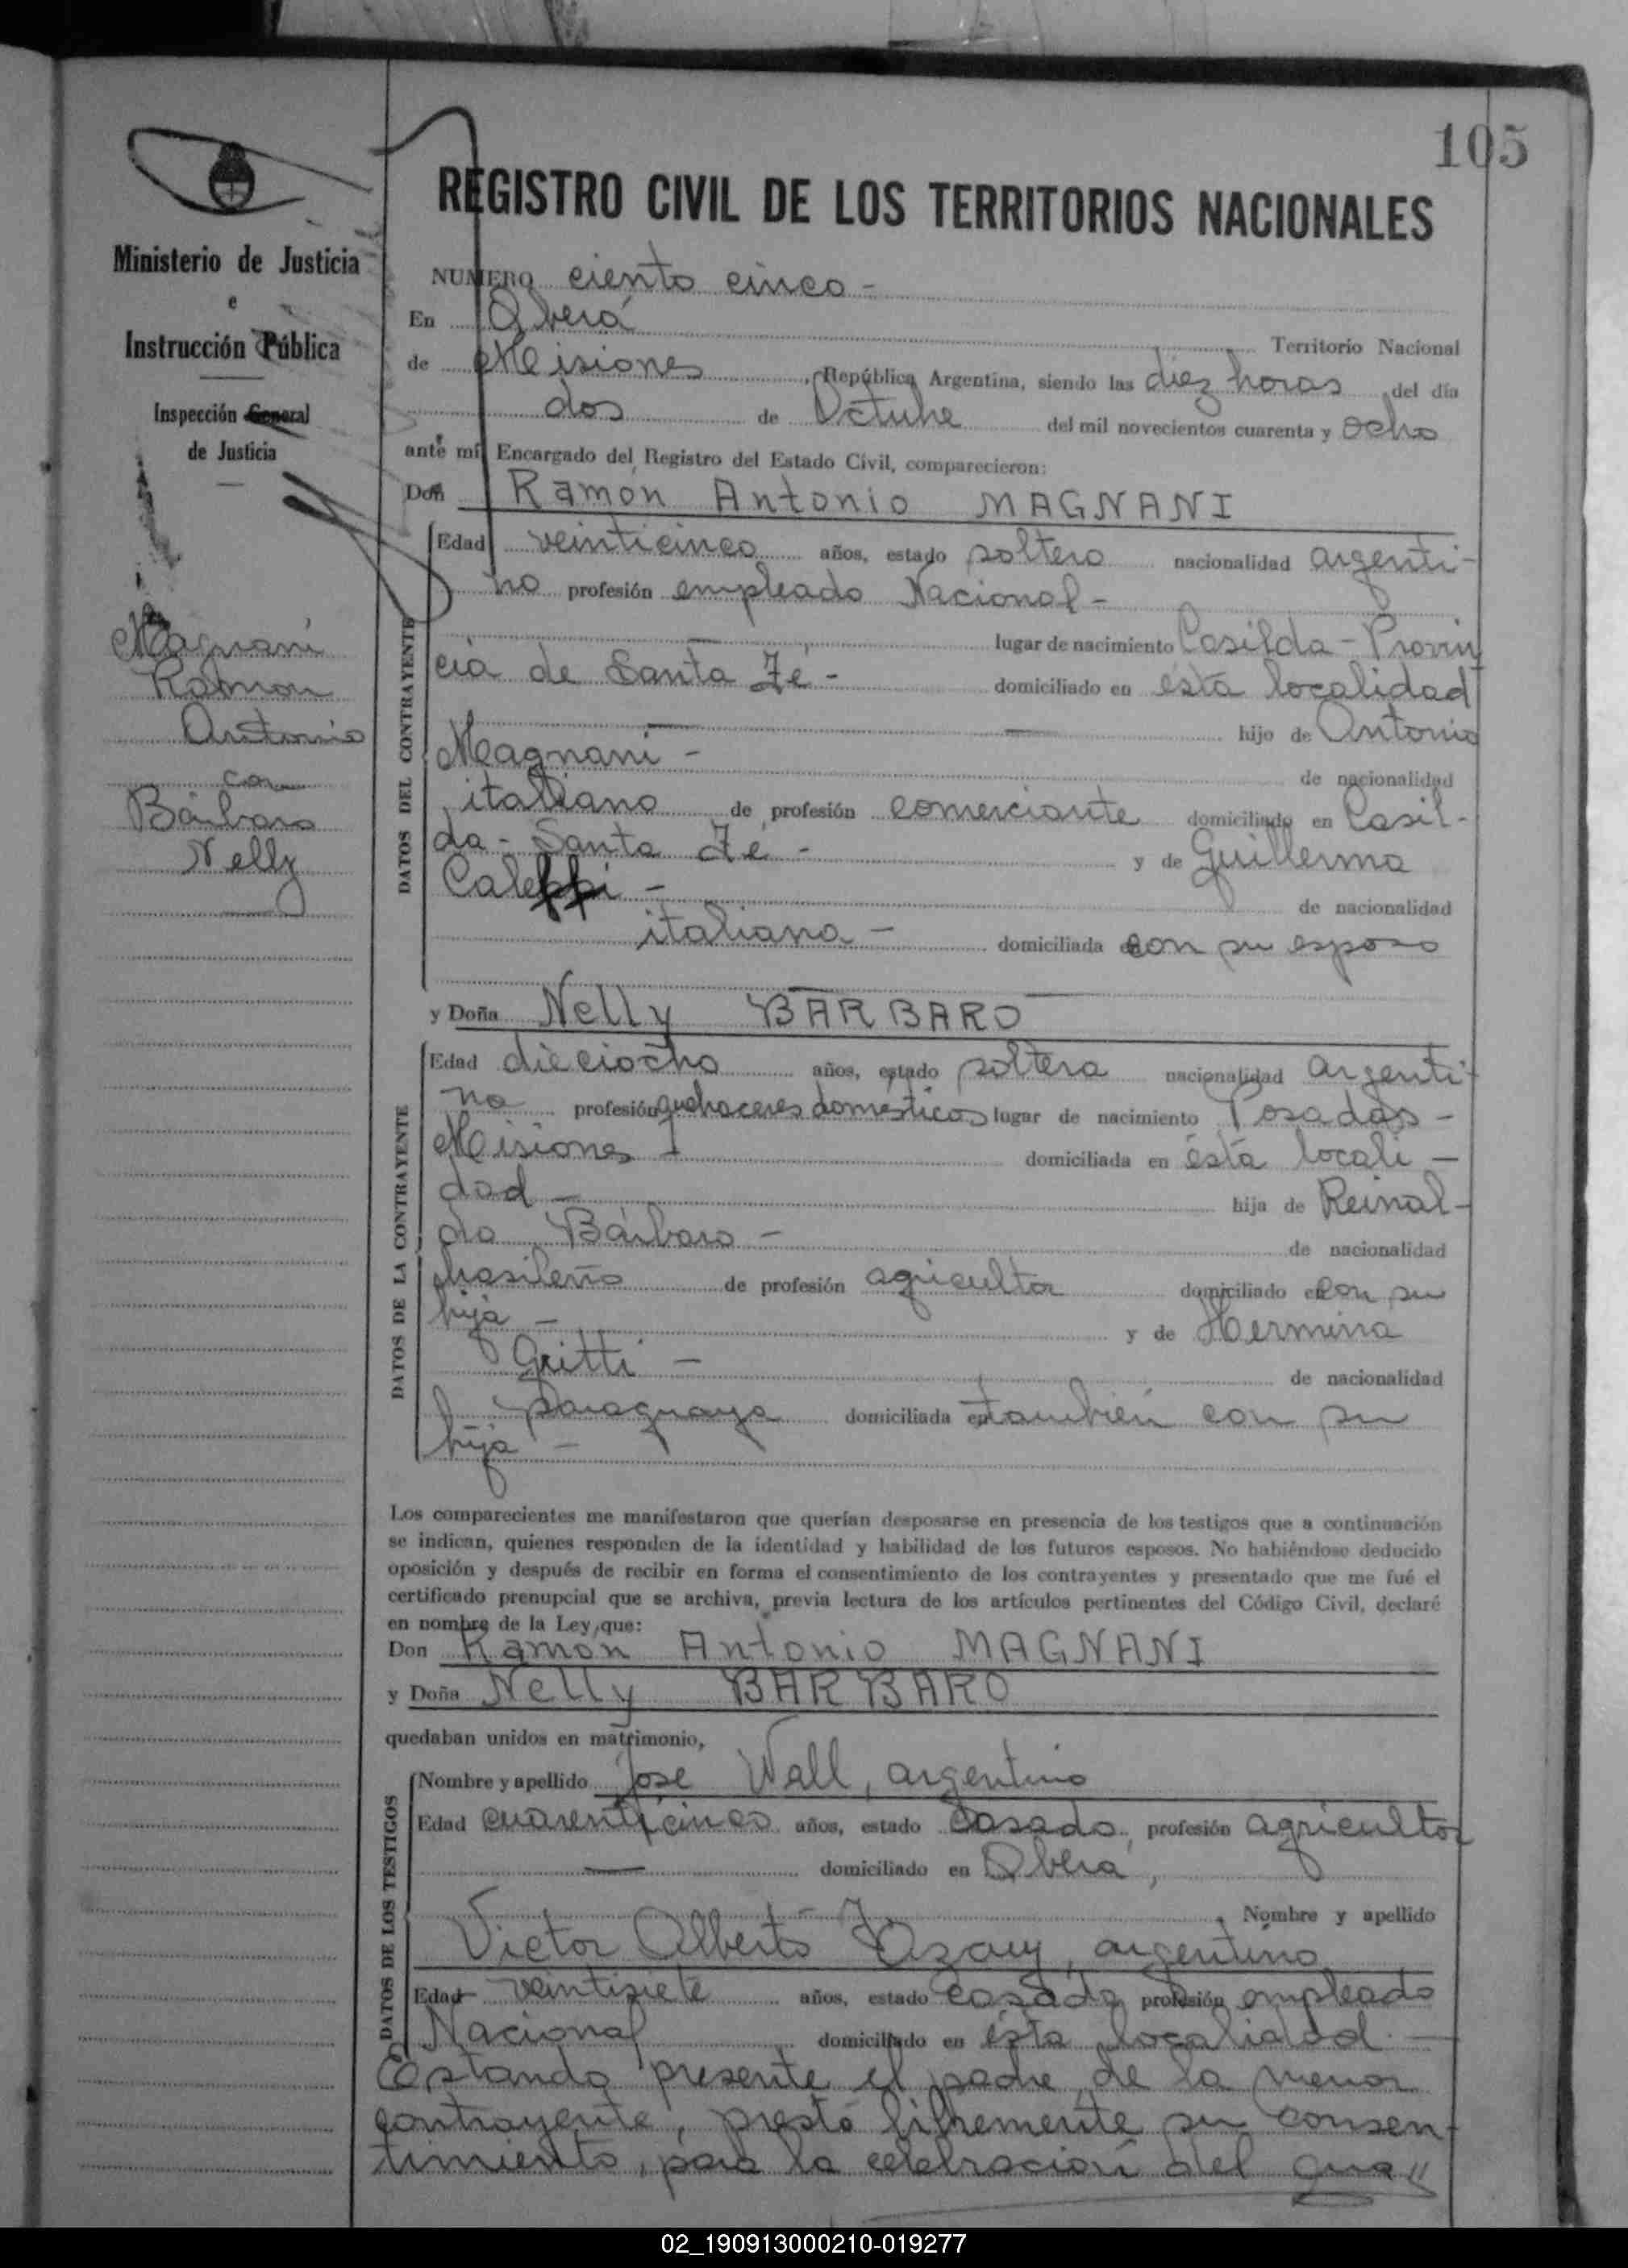 105
REGISTRO CIVIL DE LOS TERRITORIOS NACIONALES
Ministerio de Justicia
e
Instrucción Pública
Inspección General
de Justicia
Magnani
Ramon
Antonio
con
Bárbaro
Nelly
NUMERO ciento cinco -
En Oberá Territorio Nacional
de Misiones, República Argentina, siendo las diez horas del día
dos de Octubre del mil novecientos cuarenta y ocho
ante mí Encargado del Registro del Estado Civil, comparecieron:
Don Ramón Antonio MAGNANI
DATOS DEL CONTRAYENTE
Edad veinticinco años, estado soltero nacionalidad argenti-
no profesión empleado Nacional -
lugar de nacimiento Casilda - Provin
cia de Santa Fé - domiciliado en ésta localidad
hijo de Antonio
Magnani - de nacionalidad
italiano de profesión comerciante domiciliado en Casil-
da - Santa Fé - y de Guillerma
Caleppi - de nacionalidad
italiana - domiciliada con su esposo
y Doña Nelly BARBARO
DATOS DE LA CONTRAYENTE
Edad dieciocho años, estado soltera nacionalidad argenti-
na profesión quehaceres domésticos lugar de nacimiento Posadas -
Misiones - domiciliada en ésta locali -
dad - hija de Reinal-
do Bárbaro - de nacionalidad
brasileño de profesión agricultor domiciliado en con su
hija - y de Herminia
Gritti - de nacionalidad
paraguaya domiciliada en también con su
hija -
Los comparecientes me manifestaron que querían desposarse en presencia de los testigos que a continuación
se indican, quienes responden de la identidad y habilidad de los futuros esposos. No habiéndose deducido
oposición y después de recibir en forma el consentimiento de los contrayentes y presentado que me fué el
certificado prenupcial que se archiva, previa lectura de los artículos pertinentes del Código Civil, declaré
en nombre de la Ley, que:
Don Ramon Antonio MAGNANI
y Doña Nelly BARBARO
quedaban unidos en matrimonio,
DATOS DE LOS TESTIGOS
Nombre y apellido José Wall, argentino
Edad cuarenticinco años, estado casado, profesión agricultor
domiciliado en Oberá,
Nombre y apellido
Victor Alberto argentino
Edad veintisiete años, estado casado profesión empleado
Nacional domiciliado en ésta localidad. -
Estando presente el padre de la menor
contrayente, prestó libremente su consen-
timiento, para la celebración del
02_190913000210-019277